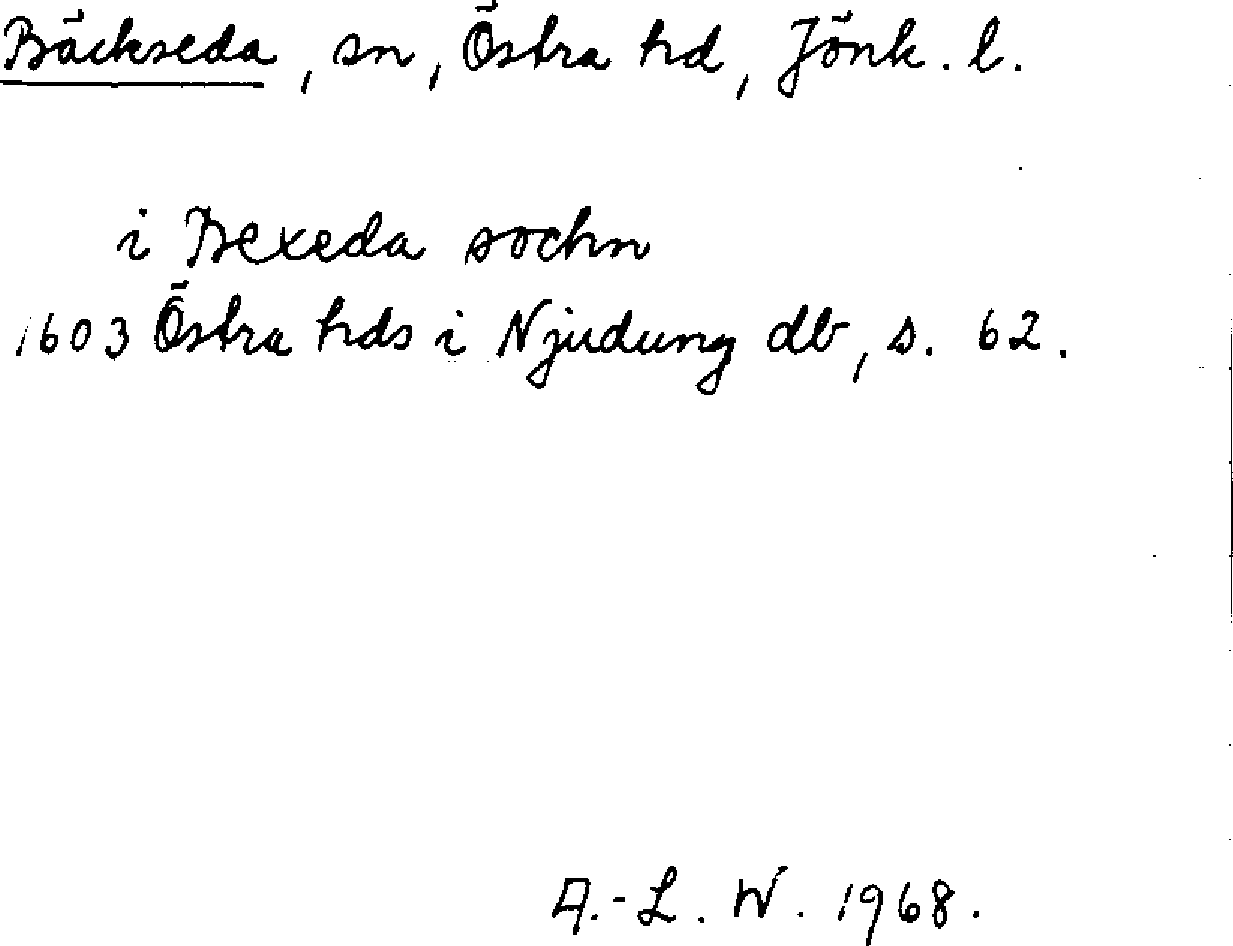 Bäckseda, sn, Östra hd, Jönk. l.
i Bexeda sochn
1603 Östra hds i Njudung db, s. 62.
A.-L. W. 1968.